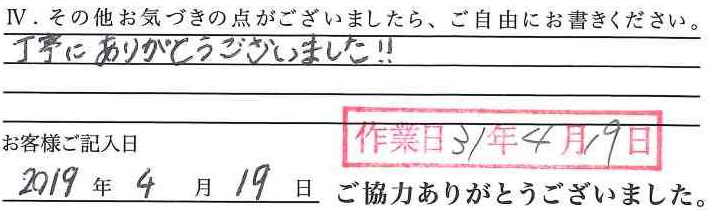 Ⅳ．その他お気づきの点がございましたら、ご自由にお書きください。
丁寧にありがとうございました!!
お客様ご記入日
作業日31年4月19日
2019年4月19日
ご協力ありがとうございました。